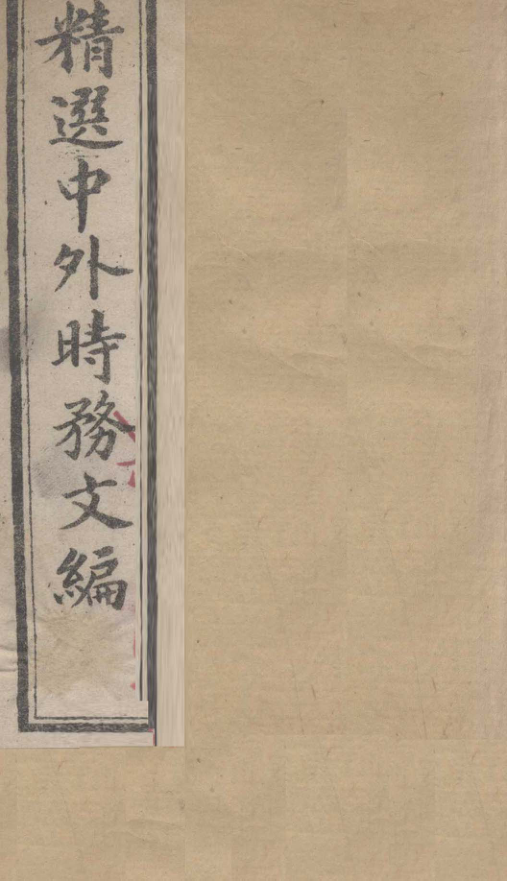 精選中外時務文編